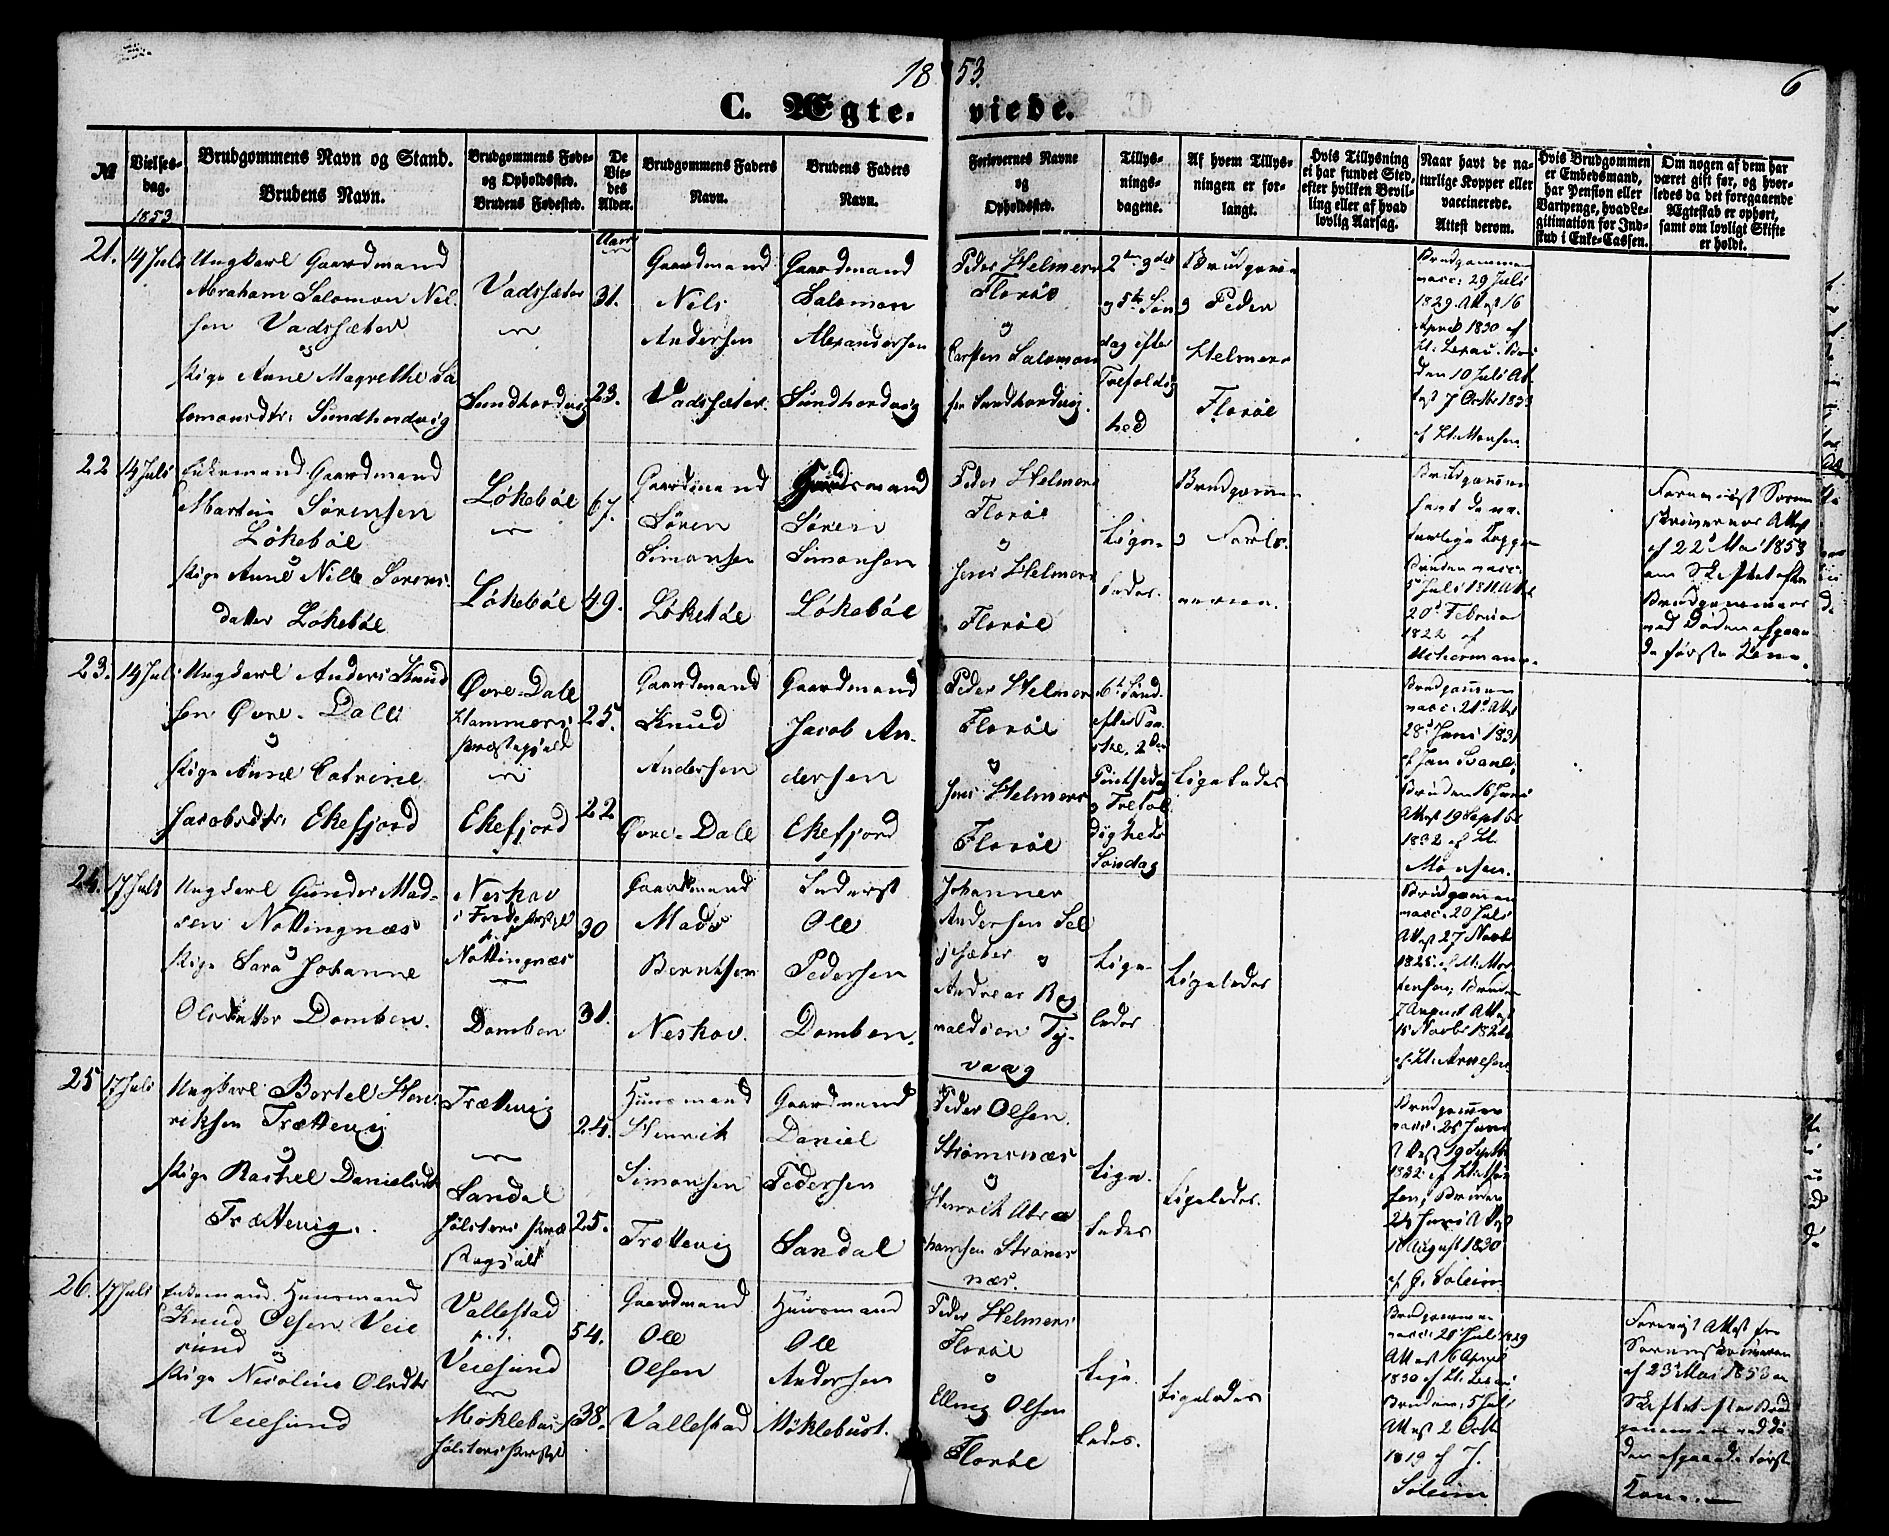 1853.
6
C. Ægte-viede.
№
Vielses-dag.
1853
Brudgommens Navn og Stand.
Brudens Navn.
Brudgommens Føde-og Opholdssted.
Brudens Fødested.
De Viedes Alder.
Brudgommens Faders Navn.
Brudens Faders Navn.
Forlovernes Navne og Opholdsted.
Tillysningsdagene.
Af hvem Tillysningen er forlangt.
Hvis Tillysning ei har fundet Sted, efter hvilken Bevilling eller af hvad lovlig Aarsag.
Naar havt de naturlige Kopper eller vaccinerede.
Attest derom.
Hvis Brudgommen er Embedsmand, har Pension eller Vartpenge, hvad Legitimation for Indskud i Enke-Cassen.
Om nogen af dem har været gift før, og hvorledes da det foregaaende Ægteskab er ophørt, samt om lovligt Skifte er holdt.
21.
14 Juli
Ungkarl Gaardmand
Abraham Salomon Nil-
sen Vadsæter
og
Pige Anne Magrethe Sa
lomonsdtr. Sundhordvig
Vadsæter
Sundhordvig
Aar
31.
23.
Gaardmand
Nils
Andersen
Vadsæter.
Gaardmand
Salomon
Alexandersen
Sundhordvig
Peder Helmers
Florøe
og
Carsten Salomon
sen Sundhordvig.
2den 3die
og 5te Søn
dag efter
Trefoldig
hed
Brudgommen
og Peder
Helmers
Florøe
Brudgommen
vacc: 29 Juli
1829. Attest 16
April 1830 af
den 10 Juli At
test 7 Octbr 1833
af Kl. Monsen
22
14 Juli
Enkemand Gaardmand
Martin Sørensen
Løkebøe
og
Pige Anne Nille Sørens-
datter Løkebøe
Løkebøe
Løkebøe
67.
49.
Gaardmand
Søren
Simonsen
Løkebøe
Gaardmand
Søren
Simonsen
Løkebøe
Peder Helmers
Florøe
og
Jens Helmers
Florøe
Lige-
ledes.
Brudgommen
og Forlo-
verne.
Brudgommen
havt de na-
turlige Kopper
Bruden vacc:
5 Juli 1811 Attest
20de Februar
1822 af
Forevist Soren
skriverens Attest
af 22de Mai 1853
om Skiftet efter
Brudgommens
ved Døden afgaae
de første Kone.
23.
14 Juli
Ungkarl Anders Knud
sen Øvre-Dale
og
Pige Anne Catrine
Jacobsdtr. Ekefjord
Øvre-Dale
Hammers
Præstegjeld
Ekefjord
25.
22
Gaardmand
Knud
Andersen
Øvre-Dale
Gaardmand
Jacob An-
dersen
Ekefjord
Peder Helmers
Florøe
og
Jens Helmers
Florøe
6te Sønd-
efter Paa-
ske, 2den
Pintsedag
og Trefol-
digheds
Søndag
Ligeledes
Brudgommen
vacc: 21de Attest
28de Juni 1831
Bruden 16 Juni
Attest 19 Septbr
1832 af Kl.
Monsen.
24.
17 Juli
Ungkarl Gunder Mad-
sen Nottingnæs
og
Pige Sara Johanne
Olsdatter Domben.
Neskov
i Førde Præstegjeld
p. t.
Nottingnæs
Domben
30
31.
Gaardmand
Mads
Berntsen
Neskov.
Inderst
Ole
Pedersen
Domben.
Johannes
Andersen Sel
jesæter og
Andreas Rag
naldsen Ty-
vaag
Lige-
ledes
Ligeledes
Brudgommen
vacc: 20 Juli
Attest 27 Novbr
1825 af M: Mor
tensen; Bruden
7 August Attest
15 Novbr
af Kl. Arnesen
25
17 Juli
Ungkarl Bertel Hen-
riksen Trættevig
og
Pige Rachel Danielsdtr
Trættevig.
Trættevig
Sandal
Jølsters Præ
stegjeld
24.
25.
Huusmand
Henrik
Simonsen
Trættevig
Gaardmand
Daniel
Pedersen
Sandal
Peder Olsen
Strømsnæs
og
Henrik Abra
hamsen Strøms
næs.
Lige-
ledes
Ligeledes.
Brudgommen
vacc: 25 Juni
Attest 19 Septbr
1832 af Kl: Mon
sen; Bruden
24 Juni Attest
18 August 1830
af G. Soleim
26.
17 Juli
Enkemand Huusmand
Knud Olsen Veie
sund og
Pige Nicoline Olsdtr
Veiesund
Vallestad
p. t.
Veiesund
Møklebust
Jølsters Præstegj
54.
38.
Gaardmand
Ole
Olsen
Vallestad
Huusmand
Ole
Andersen
Møklebust.
Peder Helmers
Florøe
og
Elling Olsen
Florøe
Lige-
ledes.
Ligeledes
Brudgommen
vacc: 28 Juli 1829
Attest 16 April
1830 af Kl.
Bruden: 5 Juli
Attest 2 Octbr
1819 af J.
Soleim
Forevist Attest fra
Sorenskriveren
af 23de Mai 1853 om
Skiftet efter Brud
gommens ved Dø-
den afgaaede første
Kone.